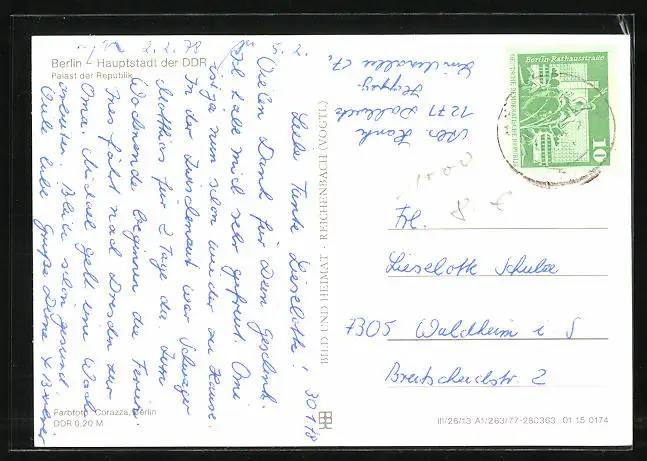 2.2.78
5.2.
Berlin - Hauptstadt der DDR
Palast der Republik
Liebe Tante Lieselotte! 30.1.78
Vielen Dank für Dein Geschenk.
habe mich sehr gefreut. Omi
ist ja nun schon wieder zu Hause.
In der Zwischenzeit war Schwager
Matthias für 2 Tage da. Zum
Wochenende beginnen die Ferien.
fährt nach Dresden zur
Oma. Michael geht eine Woche
Bleib schön gesund
Viele liebe Grüße Deine
Farbfoto: Corazza, Berlin
DDR 0,20 M
BILD UND HEIMAT · REICHENBACH (VOGTL.)
Abs.
1271
Berlin-Rathausstraße
DEUTSCHE DEMOKRATISCHE REPUBLIK
10
Frl.
Lieselotte Schulze
7305 Waldheim i S
Breitscheidstr. 2
III/26/13 A1/263/77-280363 01 15 0174